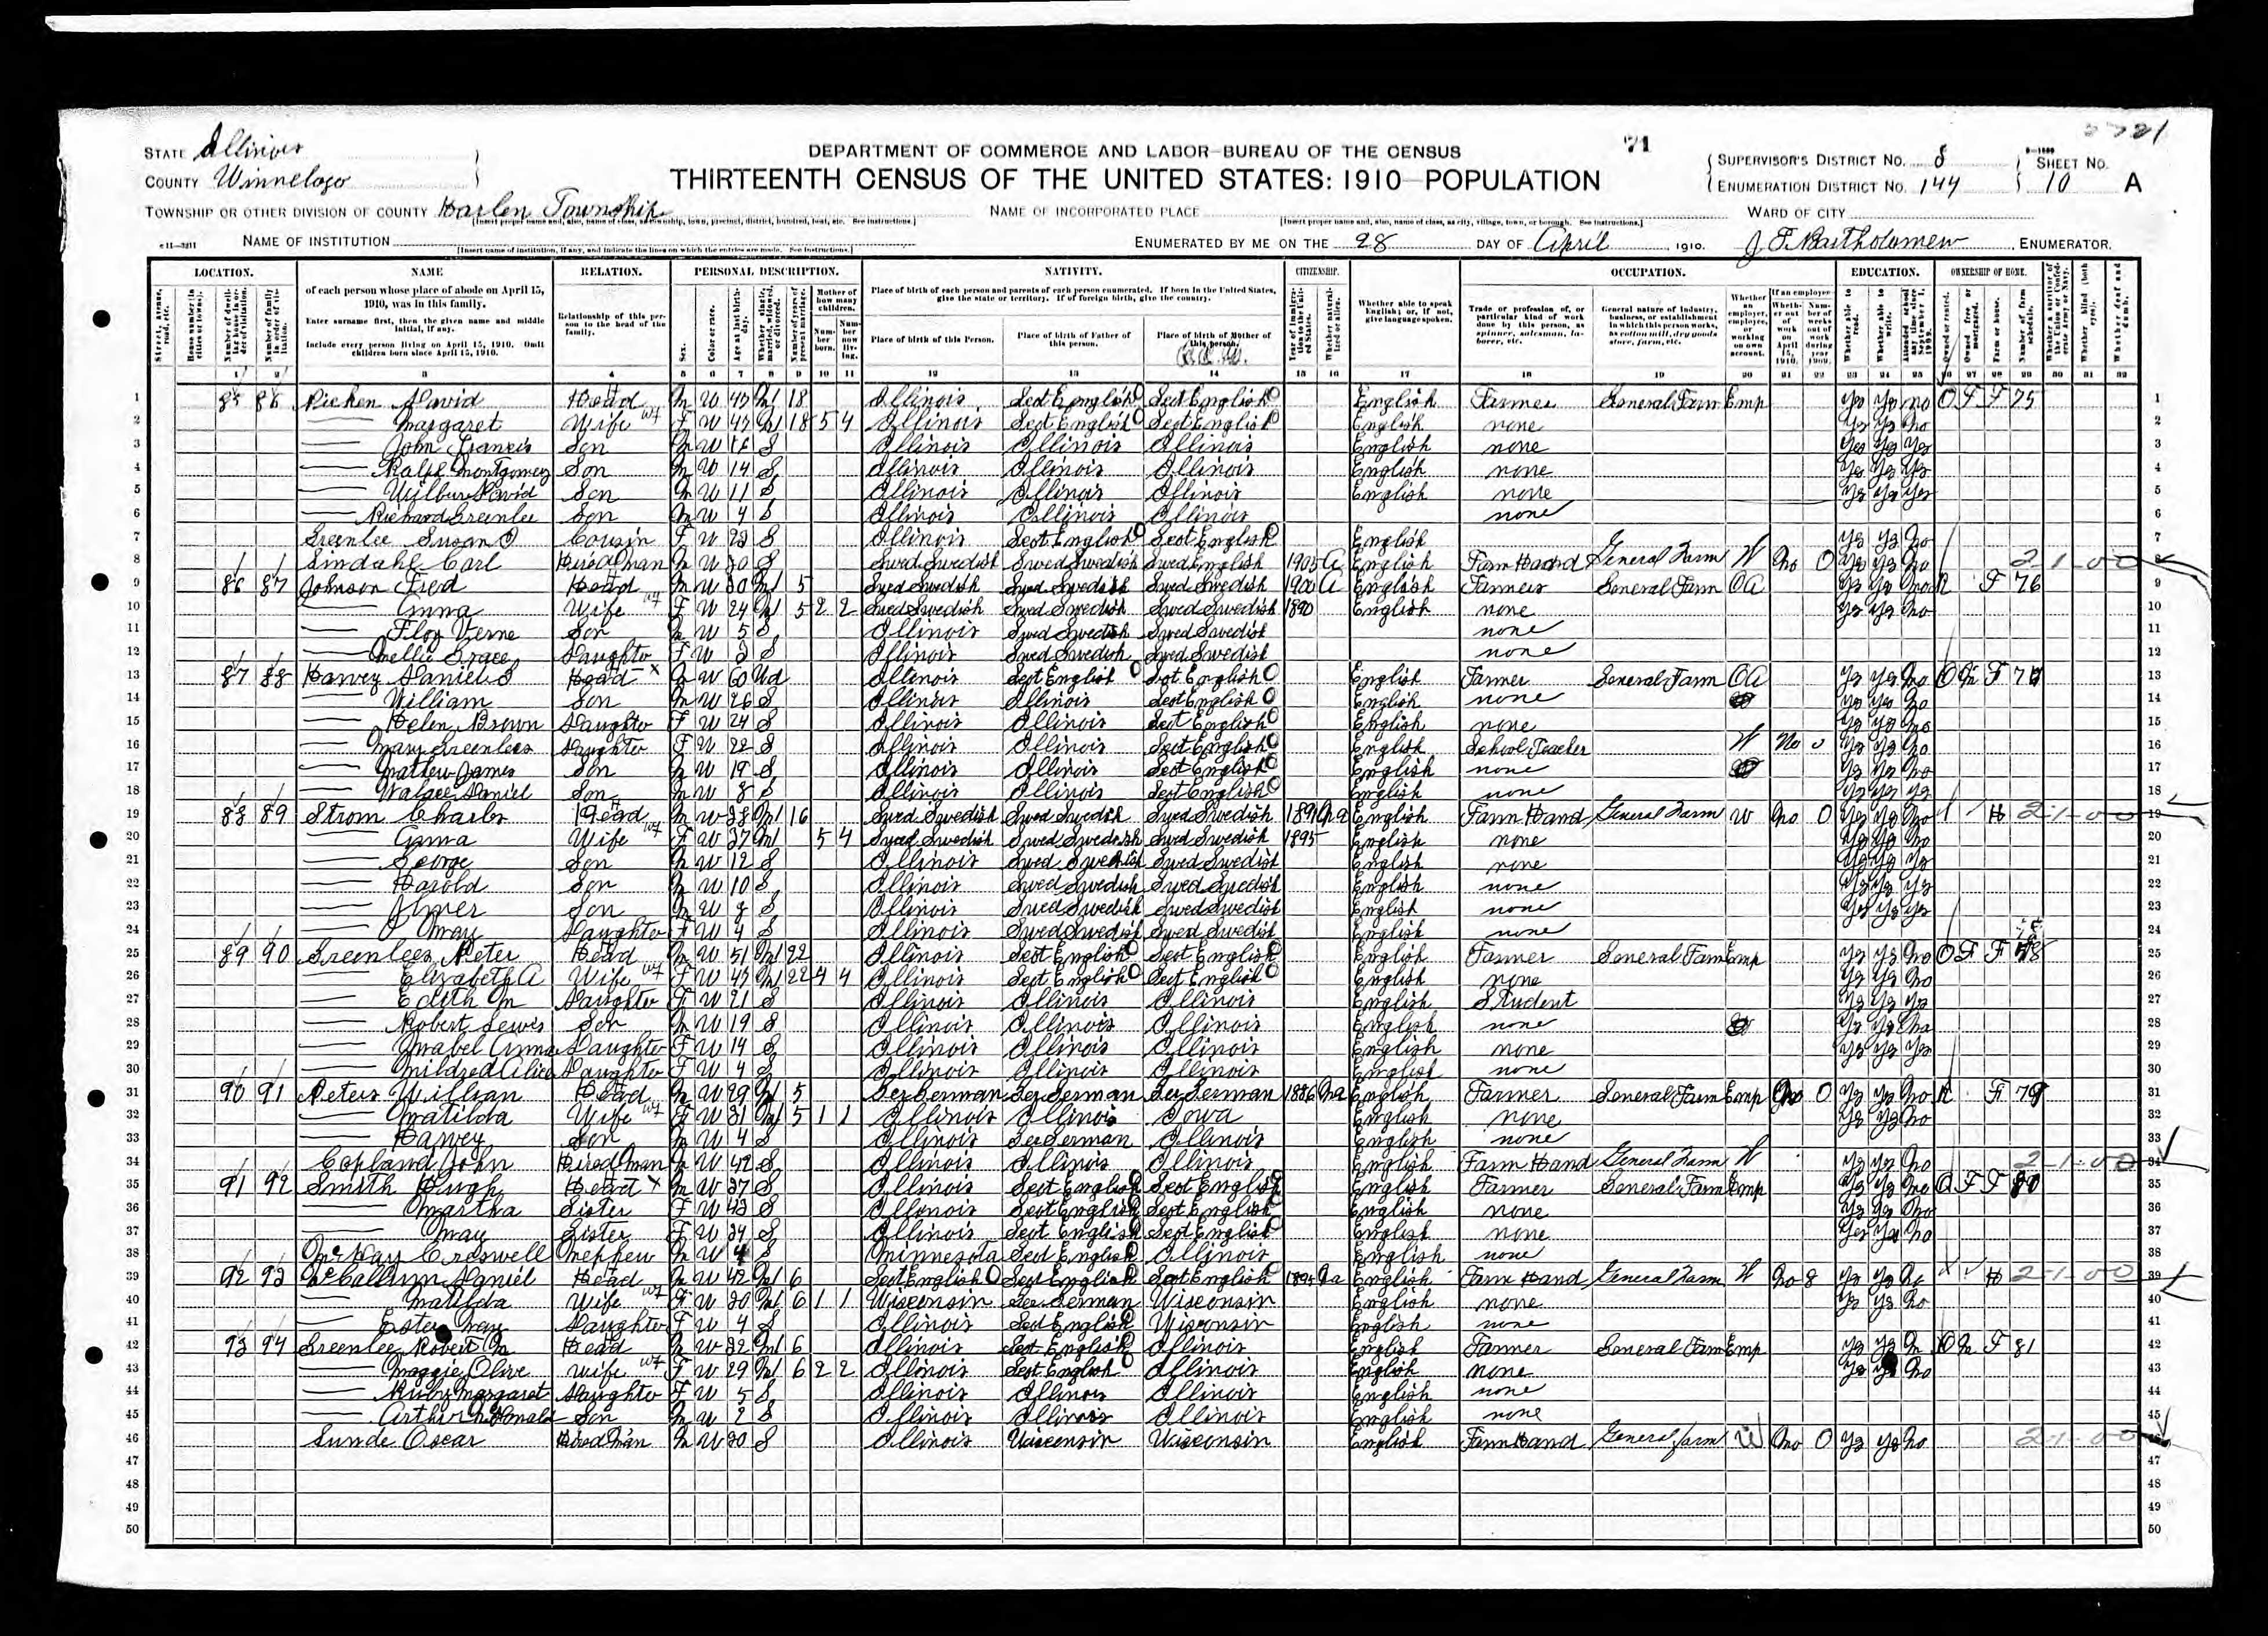 2721
71
STATE Illinois
COUNTY Winnebago
DEPARTMENT OF COMMERCE AND LABOR—BUREAU OF THE CENSUS
THIRTEENTH CENSUS OF THE UNITED STATES: 1910—POPULATION
SUPERVISOR'S DISTRICT NO. 8
ENUMERATION DISTRICT NO. 144
SHEET NO. 10 A
TOWNSHIP OR OTHER DIVISION OF COUNTY Harlen Township
NAME OF INCORPORATED PLACE
WARD OF CITY
NAME OF INSTITUTION
ENUMERATED BY ME ON THE 28 DAY OF April, 1910. J. F. Bartholomew, ENUMERATOR.
LOCATION. NAME RELATION. PERSONAL DESCRIPTION. NATIVITY. CITIZENSHIP. OCCUPATION. EDUCATION. OWNERSHIP OF HOME.
of each person whose place of abode on April 15, 1910, was in this family.
Enter surname first, then the given name and middle initial, if any.
Include every person living on April 15, 1910. Omit children born since April 15, 1910.
Relationship of this person to the head of the family.
Place of birth of each person and parents of each person enumerated. If born in the United States, give the state or territory. If of foreign birth, give the country.
Place of birth of this Person. Place of birth of Father of this person. Place of birth of Mother of this person.
Whether able to speak English; or, if not, give language spoken.
1 85 86 Picken David Head M W 47 M1 18 Illinois Scot English Scot English English Farmer General Farm Emp Yes Yes no O F F 75
2 Margaret Wife F W 47 M1 18 5 4 Illinois Scot English Scot English English none Yes Yes No
3 John Francis Son M W 16 S Illinois Illinois Illinois English none Yes Yes Yes
4 Ralph Montgomery Son M W 14 S Illinois Illinois Illinois English none Yes Yes Yes
5 Wilbur David Son M W 11 S Illinois Illinois Illinois English none Yes Yes Yes
6 Richard Greenlee Son M W 4 S Illinois Illinois Illinois none
7 Greenlee Susan Cousin F W S Illinois Scot English Scot English English Yes Yes No
8 Lindahl Carl Hired Man M W 20 S Swed Swedish Swed Swedish Swed English 1905 A English Farm Hand General Farm W No 0 Yes Yes No 2-1-00
9 86 87 Johnson Fred Head M W 30 M1 5 Swed Swedish Swed Swedish Swed Swedish 1900 A English Farmer General Farm OA Yes Yes No R F 76
10 Anna Wife F W 24 M1 5 2 2 Swed Swedish Swed Swedish Swed Swedish 1890 English none Yes Yes No
11 Floy Verne Son M W 5 S Illinois Swed Swedish Swed Swedish none
12 Nellie Grace Daughter F W S Illinois Swed Swedish Swed Swedish none
13 87 88 Harvey Daniel S Head M W 60 Wd Illinois Scot English Scot English English Farmer General Farm OA Yes Yes No O M F 77
14 William Son M W 26 S Illinois Illinois Scot English English none Yes Yes No
15 Helen Brown Daughter F W 24 S Illinois Illinois Scot English English none Yes Yes No
16 Mary Greenlees Daughter F W 22 S Illinois Illinois Scot English English School Teacher W No 0 Yes Yes No
17 Mathew James Son M W 19 S Illinois Illinois Scot English English none Yes Yes No
18 Walace Daniel Son M W 8 S Illinois Illinois Scot English English none Yes Yes Yes
19 88 89 Strom Charles Head M W 38 M1 16 Swed Swedish Swed Swedish Swed Swedish 1891 Na English Farm Hand General Farm W No 0 Yes Yes No H 2-1-00
20 Emma Wife F W 37 M1 5 4 Swed Swedish Swed Swedish Swed Swedish 1895 English none Yes Yes No
21 George Son M W 12 S Illinois Swed Swedish Swed Swedish English none Yes Yes Yes
22 Harold Son M W 10 S Illinois Swed Swedish Swed Swedish English none Yes Yes Yes
23 Elmer Son M W 8 S Illinois Swed Swedish Swed Swedish English none Yes Yes Yes
24 May Daughter F W 4 S Illinois Swed Swedish Swed Swedish English none
25 89 90 Greenlees Peter Head M W 51 M1 22 Illinois Scot English Scot English English Farmer General Farm Emp Yes Yes No O F F 78
26 Elizabeth A Wife F W 47 M1 22 4 4 Illinois Scot English Scot English English none Yes Yes No
27 Edith M Daughter F W 21 S Illinois Illinois Illinois English Student Yes Yes Yes
28 Robert Lewis Son M W 19 S Illinois Illinois Illinois English none Yes Yes No
29 Mabel Anna Daughter F W 14 S Illinois Illinois Illinois English none Yes Yes Yes
30 Mildred Alice Daughter F W 4 S Illinois Illinois Illinois English none
31 90 91 Peters William Head M W 29 M1 5 Ger German Ger German Ger German 1886 Na English Farmer General Farm Emp No 0 Yes Yes No R F 79
32 Matilda Wife F W 31 M1 5 1 1 Illinois Illinois Iowa English none Yes Yes No
33 Harvey Son M W 4 S Illinois Ger German Illinois English none
34 Copland John Hired Man M W 42 S Illinois Illinois Illinois English Farm Hand General Farm W Yes Yes No 2-1-00
35 91 92 Smith Hugh Head M W 37 S Illinois Scot English Scot English English Farmer General Farm Emp Yes Yes No O F F 80
36 Martha Sister F W 43 S Illinois Scot English Scot English English none Yes Yes No
37 May Sister F W 34 S Illinois Scot English Scot English English none Yes Yes No
38 McKay Creswell Nephew M W 4 S Minnesota Scot English Illinois English none
39 92 93 McCallum Daniel Head M W 42 M1 6 Scot English Scot English Scot English 1895 Na English Farm Hand General Farm W No 8 Yes Yes No H 2-1-00
40 Matilda Wife F W 30 M1 6 1 1 Wisconsin Ger German Wisconsin English none Yes Yes No
41 Ester May Daughter F W 4 S Illinois Scot English Wisconsin English none
42 93 94 Greenlee Robert M Head M W 32 M1 6 Illinois Scot English Illinois English Farmer General Farm Emp Yes Yes N O M F 81
43 Maggie Olive Wife F W 29 M1 6 2 2 Illinois Scot English Illinois English none Yes Yes No
44 Ruby Margaret Daughter F W 5 S Illinois Illinois Illinois English none
45 Arthur Donald Son M W 2 S Illinois Illinois Illinois English none
46 Sunde Oscar Hired Man M W 30 S Illinois Wisconsin Wisconsin English Farm Hand General farm W No 0 Yes Yes No 2-1-00
47
48
49
50